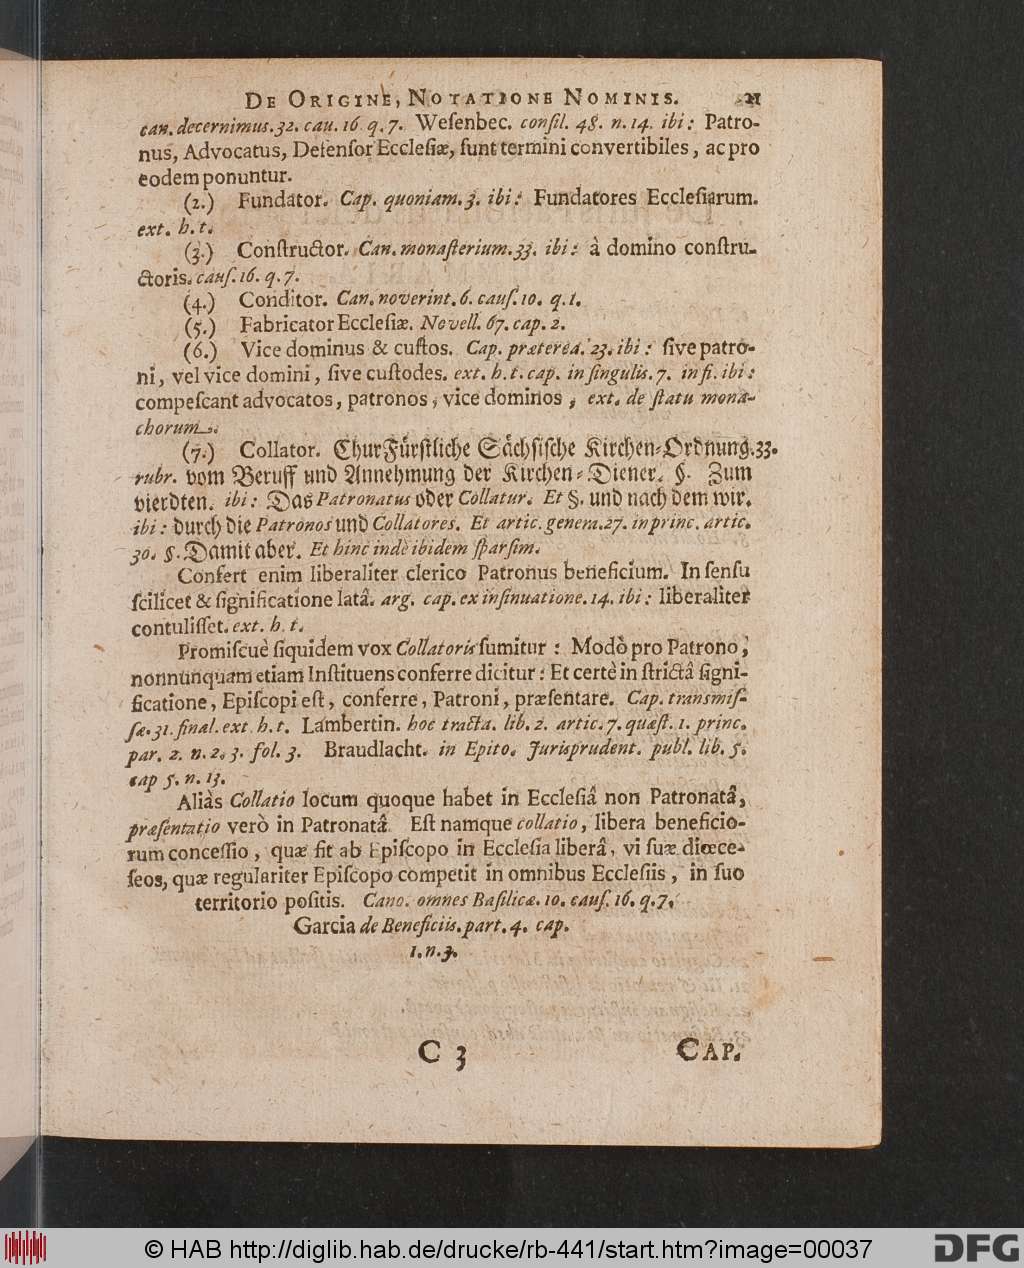 DE ORIGINE, NOTATIONE NOMINIS. 21
can. decernimus. 32. cau. 16. q. 7. Weſenbec. conſil. 48. n. 14. ibi: Patro-
nus, Advocatus, Defenſor Eccleſiæ, ſunt termini convertibiles, ac pro
eodem ponuntur.
(2.) Fundator. Cap. quoniam. 3. ibi: Fundatores Eccleſiarum.
ext. h. t.
(3.) Conſtructor. Can. monaſterium. 33. ibi: à domino conſtru-
ctoris. cauſ. 16. q. 7.
(4.) Conditor. Can. noverint. 6. cauſ. 10. q. 1.
(5.) Fabricator Eccleſiæ. Novell. 67. cap. 2.
(6.) Vice dominus & cuſtos. Cap. præterea. 23. ibi: ſive patro-
ni, vel vice domini, ſive cuſtodes. ext. h. t. cap. in ſingulis. 7. in fi. ibi:
compeſcant advocatos, patronos, vice dominos, ext. de ſtatu mona-
chorum.
(7.) Collator. ChurFürſtliche Sächſiſche Kirchen-Ordnung. 33.
rubr. vom Beruff und Annehmung der Kirchen-Diener. §. Zum
vierdten. ibi: Das Patronatus oder Collatur. Et §. und nach dem wir.
ibi: durch die Patronos und Collatores. Et artic. genera. 27. in princ. artic.
30. §. Damit aber. Et hinc indè ibidem ſparſim.
Confert enim liberaliter clerico Patronus beneficium. In ſenſu
ſcilicet & ſignificatione latâ. arg. cap. ex inſinuatione. 14. ibi: liberaliter
contuliſſet. ext. h. t.
Promiſcuè ſiquidem vox Collatoris ſumitur: Modò pro Patrono,
nonnunquam etiam Inſtituens conferre dicitur: Et certè in ſtrictâ ſigni-
ficatione, Epiſcopi eſt, conferre, Patroni, præſentare. Cap. transmiſ-
ſæ. 31. final. ext. h. t. Lambertin. hoc tracta. lib. 2. artic. 7. quæſt. 1. princ.
par. 2. n. 2. 3. fol. 3. Braudlacht. in Epito. Jurisprudent. publ. lib. 5.
cap 5. n. 13.
Aliàs Collatio locum quoque habet in Eccleſiâ non Patronatâ,
præſentatio verò in Patronatâ. Eſt namque collatio, libera beneficio-
rum conceſſio, quæ fit ab Epiſcopo in Eccleſia liberâ, vi ſuæ diœce-
ſeos, quæ regulariter Epiſcopo competit in omnibus Eccleſiis, in ſuo
territorio poſitis. Cano. omnes Baſilicæ. 10. cauſ. 16. q. 7.
Garcia de Beneficiis. part. 4. cap.
1. n. 3.
C 3 CAP.
© HAB http://diglib.hab.de/drucke/rb-441/start.htm?image=00037 DFG